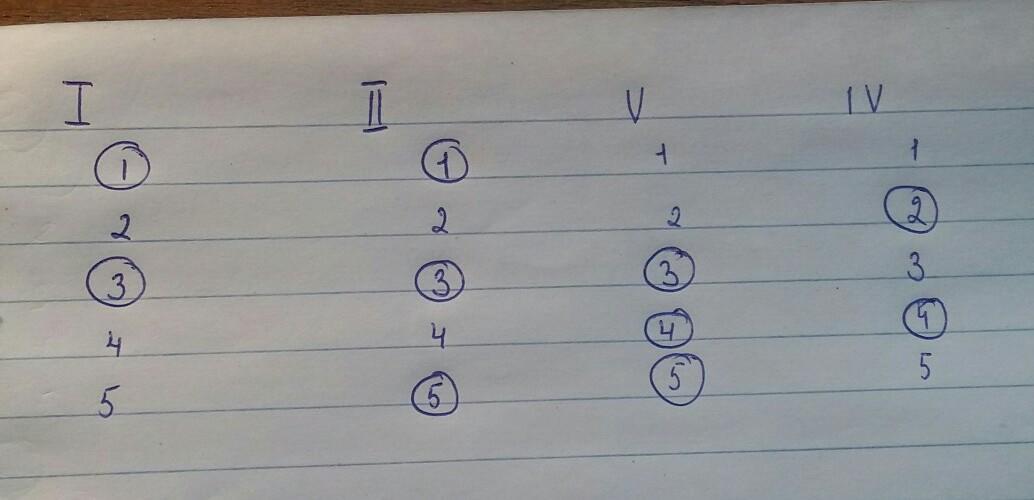 I II V IV
1 1 1 1
2 2 2 2
3 3 3 3
4 4 4 4
5 5 5 5